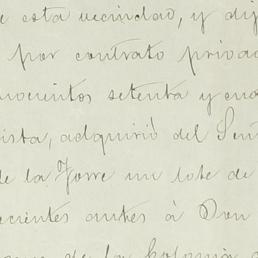 e esta vecindad, y dij
por contrato privad
novecientos setenta y cua
ista, adquirió del Señ
de la Torre un lote de
ecientes antes à Don
de la Colonia